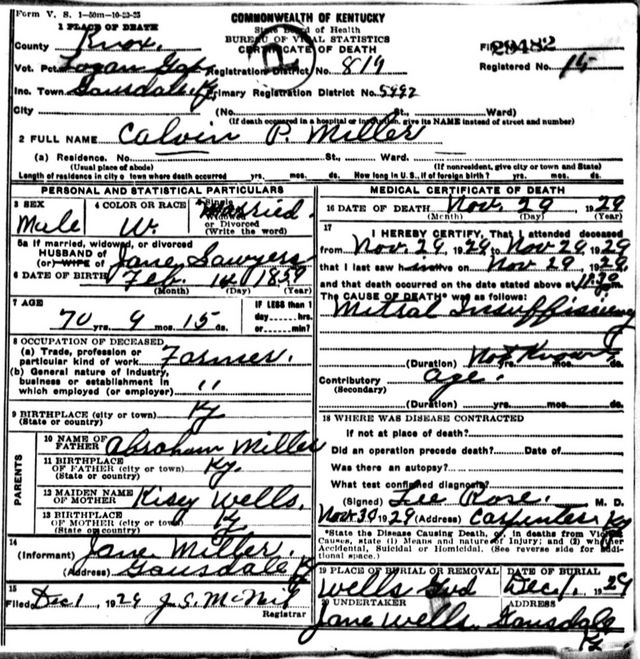 Form V. S. 1-50m-10-23-25
COMMONWEALTH OF KENTUCKY
State Board of Health
BUREAU OF VITAL STATISTICS
CERTIFICATE OF DEATH
1 PLACE OF DEATH
County Knox.
File No. 29482
Vot. Pct. Logan Gap Registration District No. 819
Registered No. 15
Inc. Town Gausdale Ky Primary Registration District No. 5492
City (No. St., Ward)
(If death occurred in a hospital or institution, give its NAME instead of street and number)
2 FULL NAME Calvin P. Miller
(a) Residence. No. St., Ward.
(Usual place of abode) (If nonresident, give city or town and State)
Length of residence in city or town where death occurred yrs. mos. ds. How long in U.S., if of foreign birth? yrs. mos. ds.
PERSONAL AND STATISTICAL PARTICULARS
3 SEX
Male
4 COLOR OR RACE
W.
5 Single
Married
Widowed
or Divorced
(Write the word)
Married.
5a If married, widowed, or divorced
HUSBAND of
(or) WIFE of Jane Sawyers
6 DATE OF BIRTH Feb. 14, 1859
(Month) (Day) (Year)
7 AGE
70 yrs. 9 mos. 15 ds.
IF LESS than 1
day ----- hrs.
or ----- min?
8 OCCUPATION OF DECEASED
(a) Trade, profession or
particular kind of work Farmer.
(b) General nature of Industry,
business or establishment in
which employed (or employer) "
9 BIRTHPLACE (city or town) Ky
(State or country)
PARENTS
10 NAME OF
FATHER Abraham Miller
11 BIRTHPLACE
OF FATHER (city or town) Ky.
(State or country)
12 MAIDEN NAME
OF MOTHER Kisey Wells.
13 BIRTHPLACE
OF MOTHER (city or town) Ky
(State or country)
14
(Informant) Jane Miller.
(Address) Gausdale Ky
15
Filed Dec 1, 1929 J. S. McNeil
Registrar
MEDICAL CERTIFICATE OF DEATH
16 DATE OF DEATH Nov. 29, 1929
(Month) (Day) (Year)
17
I HEREBY CERTIFY, That I attended deceased
from Nov. 29, 1929 to Nov 29, 1929
that I last saw him alive on Nov 29, 1929,
and that death occurred on the date stated above at 11:30 m.
The CAUSE OF DEATH* was as follows:
Mitral Insufficiency
(Duration) Not Known yrs. mos. ds.
Contributory Age.
(Secondary)
(Duration) yrs. mos. ds.
18 WHERE WAS DISEASE CONTRACTED
If not at place of death?
Did an operation precede death? Date of
Was there an autopsy?
What test confirmed diagnosis?
(Signed) Lee Rose. M. D.
Nov. 30 1929 (Address) Carpenter Ky
*State the Disease Causing Death, or, in deaths from Violent
Causes, state (1) Means and nature of Injury; and (2) whether
Accidental, Suicidal or Homicidal. (See reverse side for additional space.)
19 PLACE OF BURIAL OR REMOVAL DATE OF BURIAL
Wells Gvd Dec. 1, 1929
20 UNDERTAKER ADDRESS
Jane Wells. Gausdale
Ky